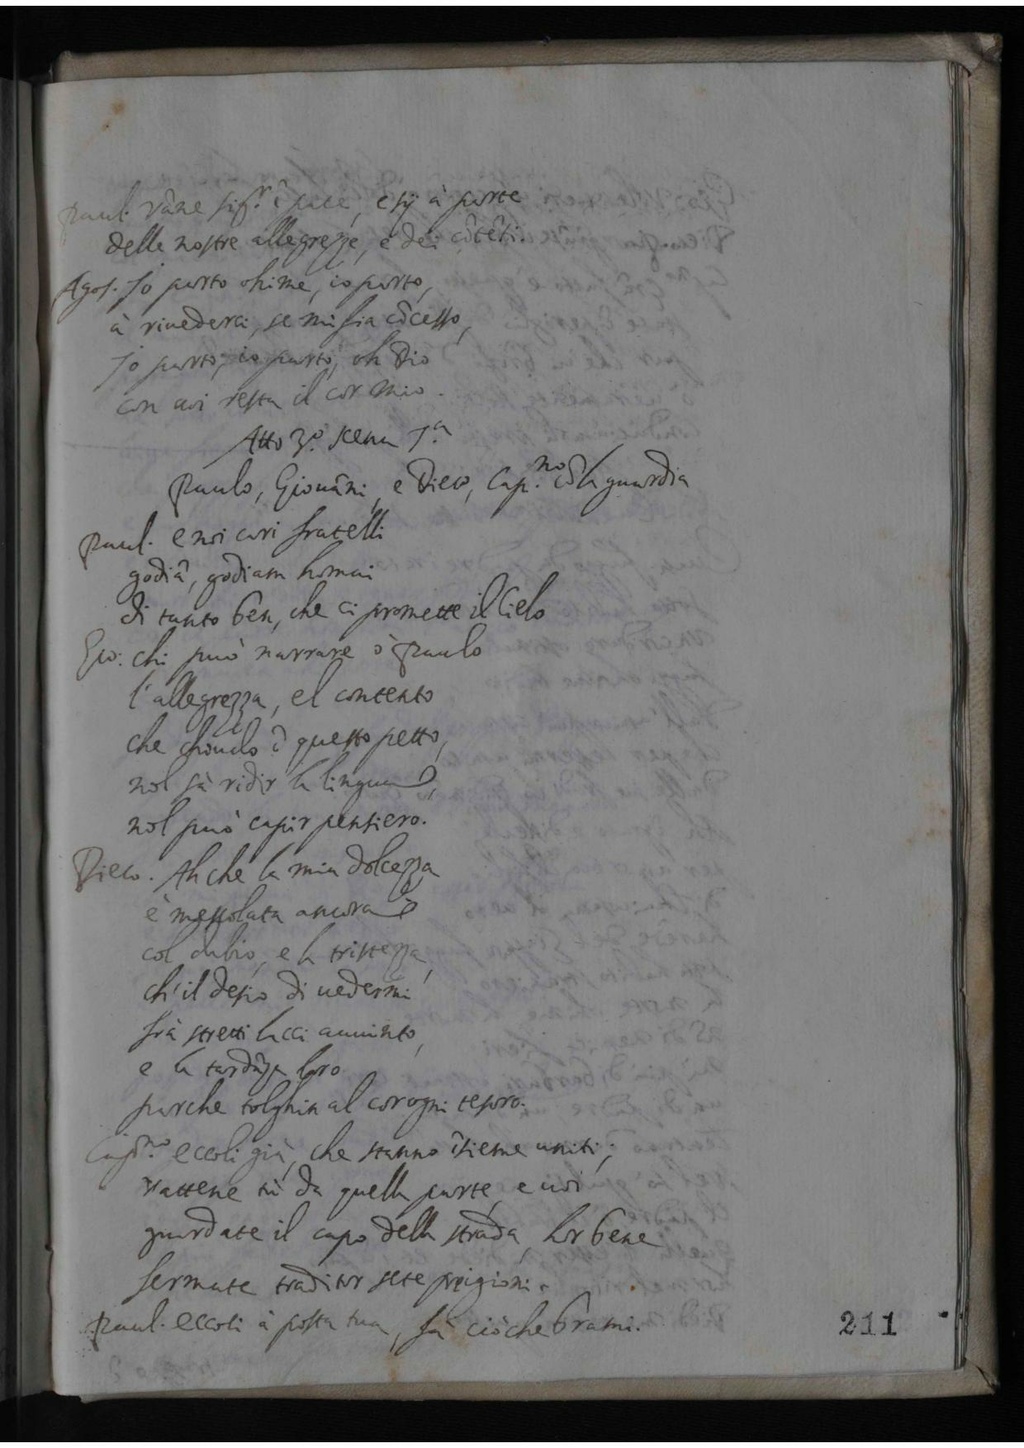 Paul. vane fig.r ĩ pace, e sij à parte
delle nostre allegrezze, e dei cõtẽti.
Agos. Io parto ohime, io parto,
à rivederci, se mi sia cõcesso,
Io parto, io parto, oh Dio
con voi resta il cor mio.
Atto 3.o scena 1.a
Paulo, Giouãni, e Dieco, Cap.no cõ la guardia
Paul. e noi cari fratelli
godiã, godiam homai
di tanto ben, che ci promette il Cielo
Gio: chi può narrare ò Paulo
l'allegrezza, el contento
che chiudo ĩ questo petto,
nol sà ridir la lingua,
nol può capir pensiero.
Dieco. Ah che la mia dolcezza
è mescolata ancora
col dubio, e la tristezza,
ch'il desio di uedermi
frà stretti lacci auuinto,
e la tardãza loro
parche tolghin al cor ogni tesoro.
Cap.no eccoli già, che stanno ĩsieme uniti;
vattene tù da quella parte, e uoi
guardate il capo della strada, hor bene
fermate traditor sete prigioni.
Paul. eccoti à posta tua, fà ciò che brami.
211